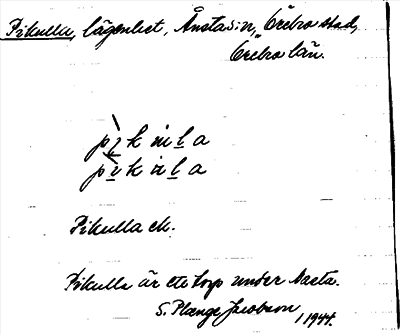 Pikulla, lägenhet, Ånsta s:n, Örebro stad,
Örebro län.
Pikulla ek.
Pikulla är ett torp under Aasta.
S. Plænge Jacobson, 1944.